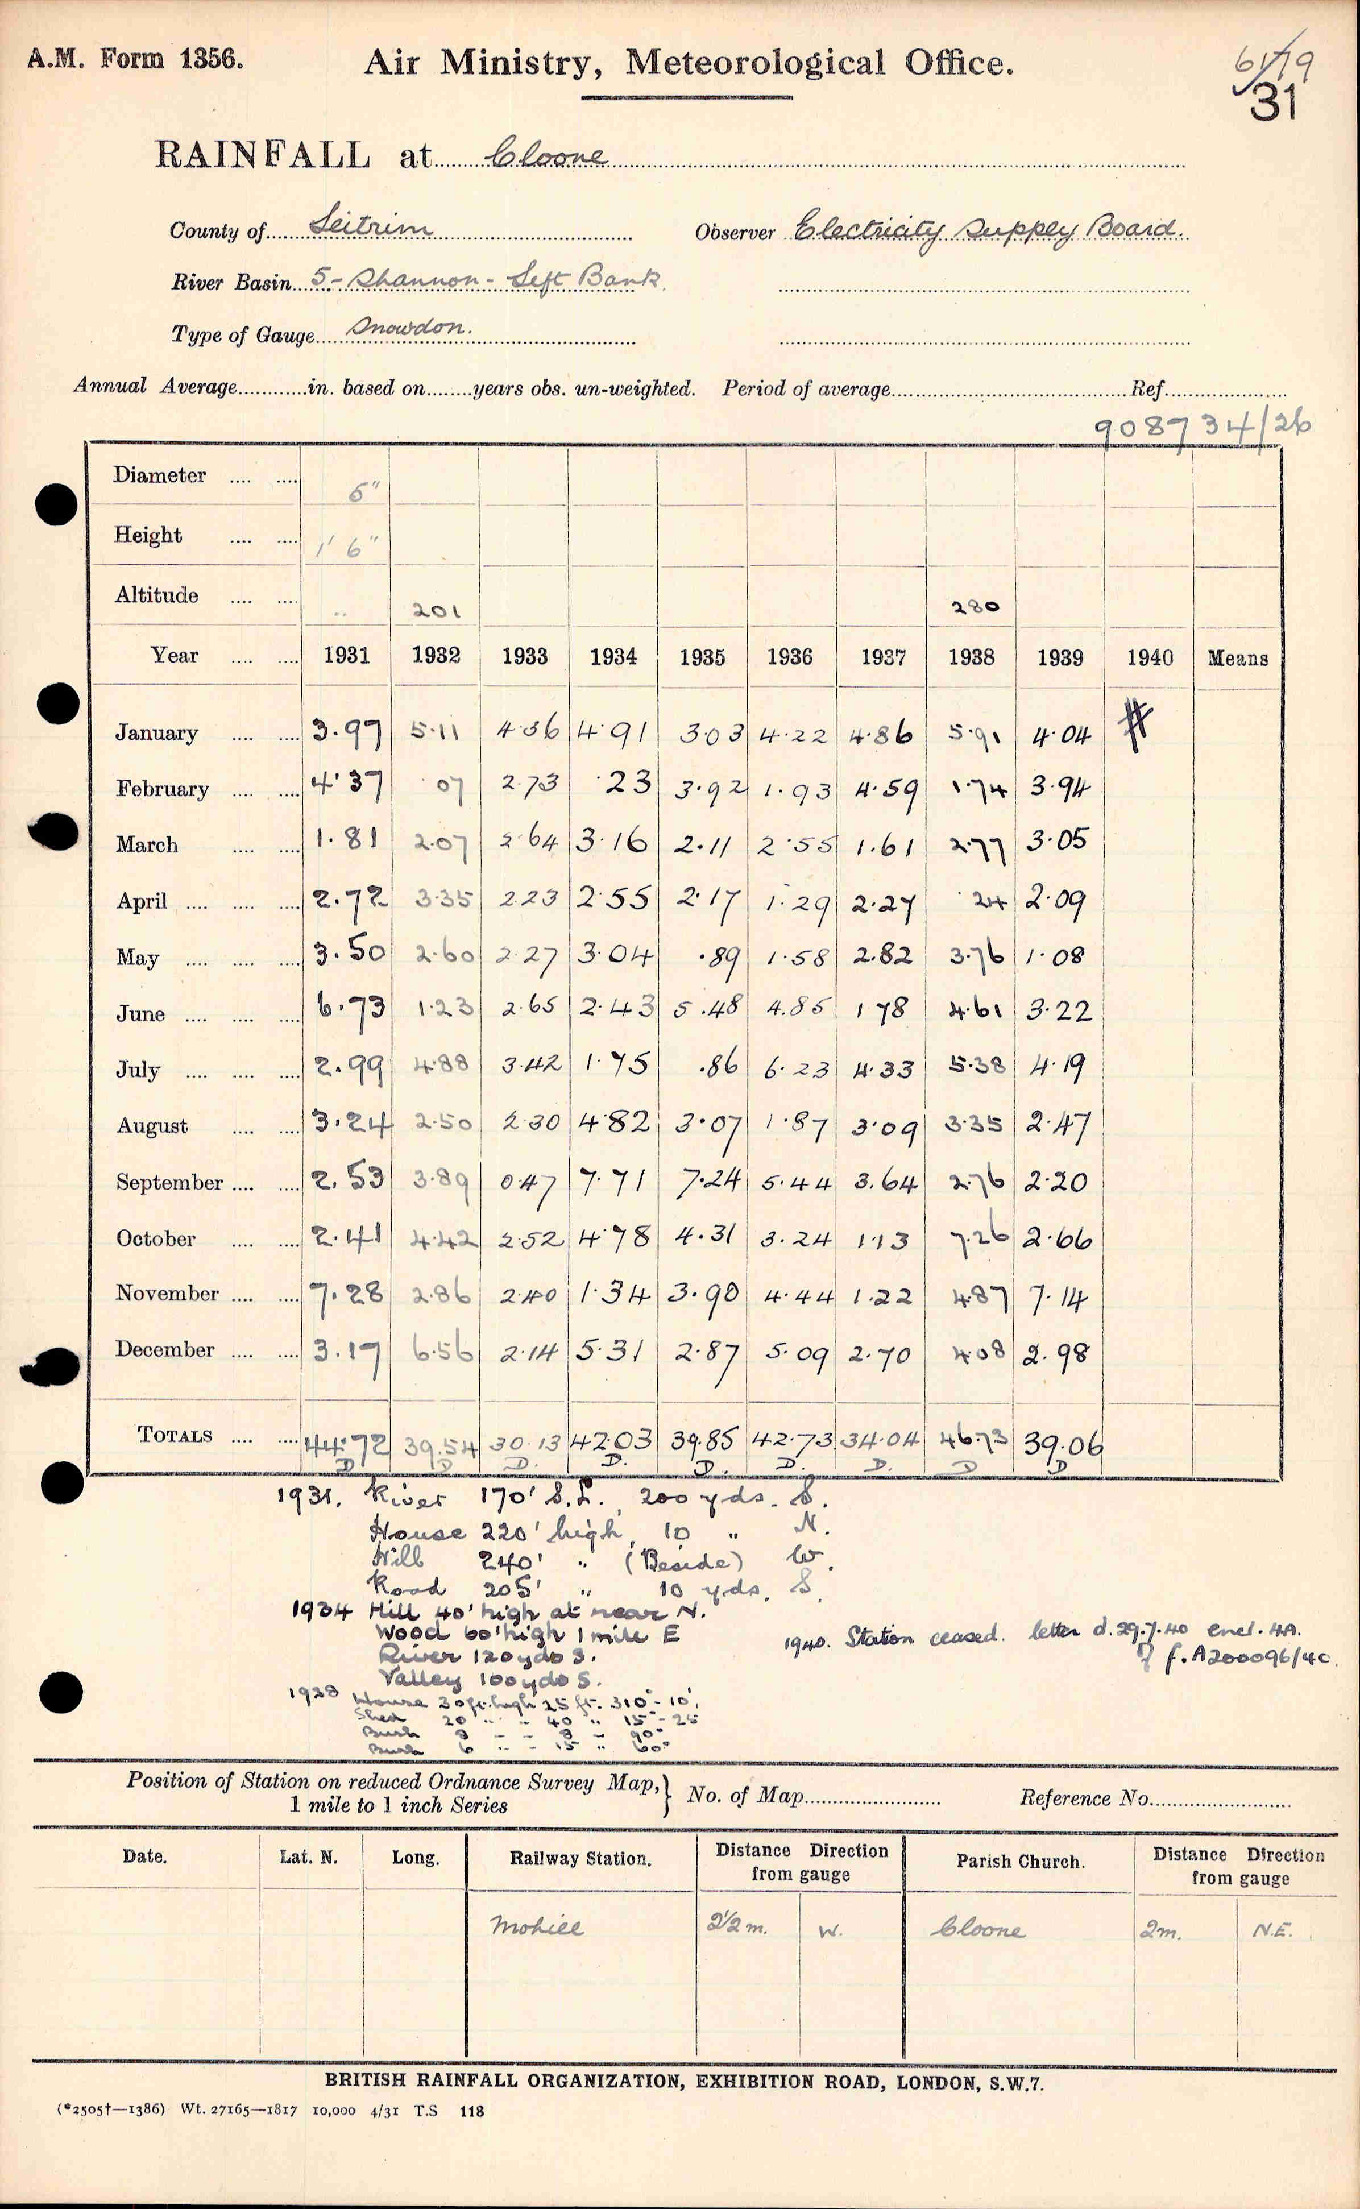 A.M. Form 1356.
Air Ministry, Meteorological Office.
31
RAINFALL at Cloone
County of Leitrim Observer Electricity Supply Board.
River Basin 5 - Shannon - Left Bank.
Type of Gauge Snowdon.
Annual Average............in. based on........years obs. un-weighted. Period of average............Ref............
908734/26
Diameter .... .... 5"
Height .... .... 1' 6"
Altitude .... .... 201 280
Year .... .... 1931 1932 1933 1934 1935 1936 1937 1938 1939 1940 Means
January .... .... 3.97 5.11 4.36 4.91 3.03 4.22 4.86 5.91 4.04 #
February .... .... 4.37 .07 2.73 .23 3.92 1.93 4.59 1.74 3.94
March .... .... 1.81 2.07 2.64 3.16 2.11 2.55 1.61 2.77 3.05
April .... .... .... 2.72 3.35 2.23 2.55 2.17 1.29 2.27 .24 2.09
May .... .... .... 3.50 2.60 2.27 3.04 .89 1.58 2.82 3.76 1.08
June .... .... .... 6.73 1.23 2.65 2.43 5.48 4.85 1.78 4.61 3.22
July .... .... .... 2.99 4.88 3.42 1.75 .86 6.23 4.33 5.38 4.19
August .... .... 3.24 2.50 2.30 4.82 3.07 1.87 3.09 3.35 2.47
September .... .... 2.53 3.89 0.47 7.71 7.24 5.44 3.64 2.76 2.20
October .... .... 2.41 4.42 2.52 4.78 4.31 3.24 1.13 7.26 2.66
November .... .... 7.28 2.86 2.40 1.34 3.90 4.44 1.22 4.87 7.14
December .... .... 3.17 6.56 2.14 5.31 2.87 5.09 2.70 4.08 2.98
TOTALS .... .... 44.72 39.54 30.13 42.03 39.85 42.73 34.04 46.73 39.06
D D D. D. D. D. D. D D
1931. River 170' S.L. 200 yds. S.
House 220' high 10 " N.
Hill 240' " (Beside) W.
Road 205' " 10 yds. S.
1934 Hill 40' high at near N.
Wood 60' high 1 mile E
River 120 yds S.
Valley 100 yds S.
1940. Station ceased. letter d. 29.7.40 encl. 4A.
f. A200096/40
1938 House 30 ft. high 25 ft. 310° - 10°.
Shed 20 " " 40 " 15° - 25
Bush 8 " " 8 " 90°
Bush 6 " " 15 " 60°
Position of Station on reduced Ordnance Survey Map, } No. of Map............ Reference No............
1 mile to 1 inch Series
Date. Lat. N. Long. Railway Station. Distance from gauge Direction Parish Church. Distance from gauge Direction
Mohill 2½ m. W. Cloone 2m. N.E.
BRITISH RAINFALL ORGANIZATION, EXHIBITION ROAD, LONDON, S.W.7.
(*2505†—1386) Wt. 27165—1817 10,000 4/31 T.S 118